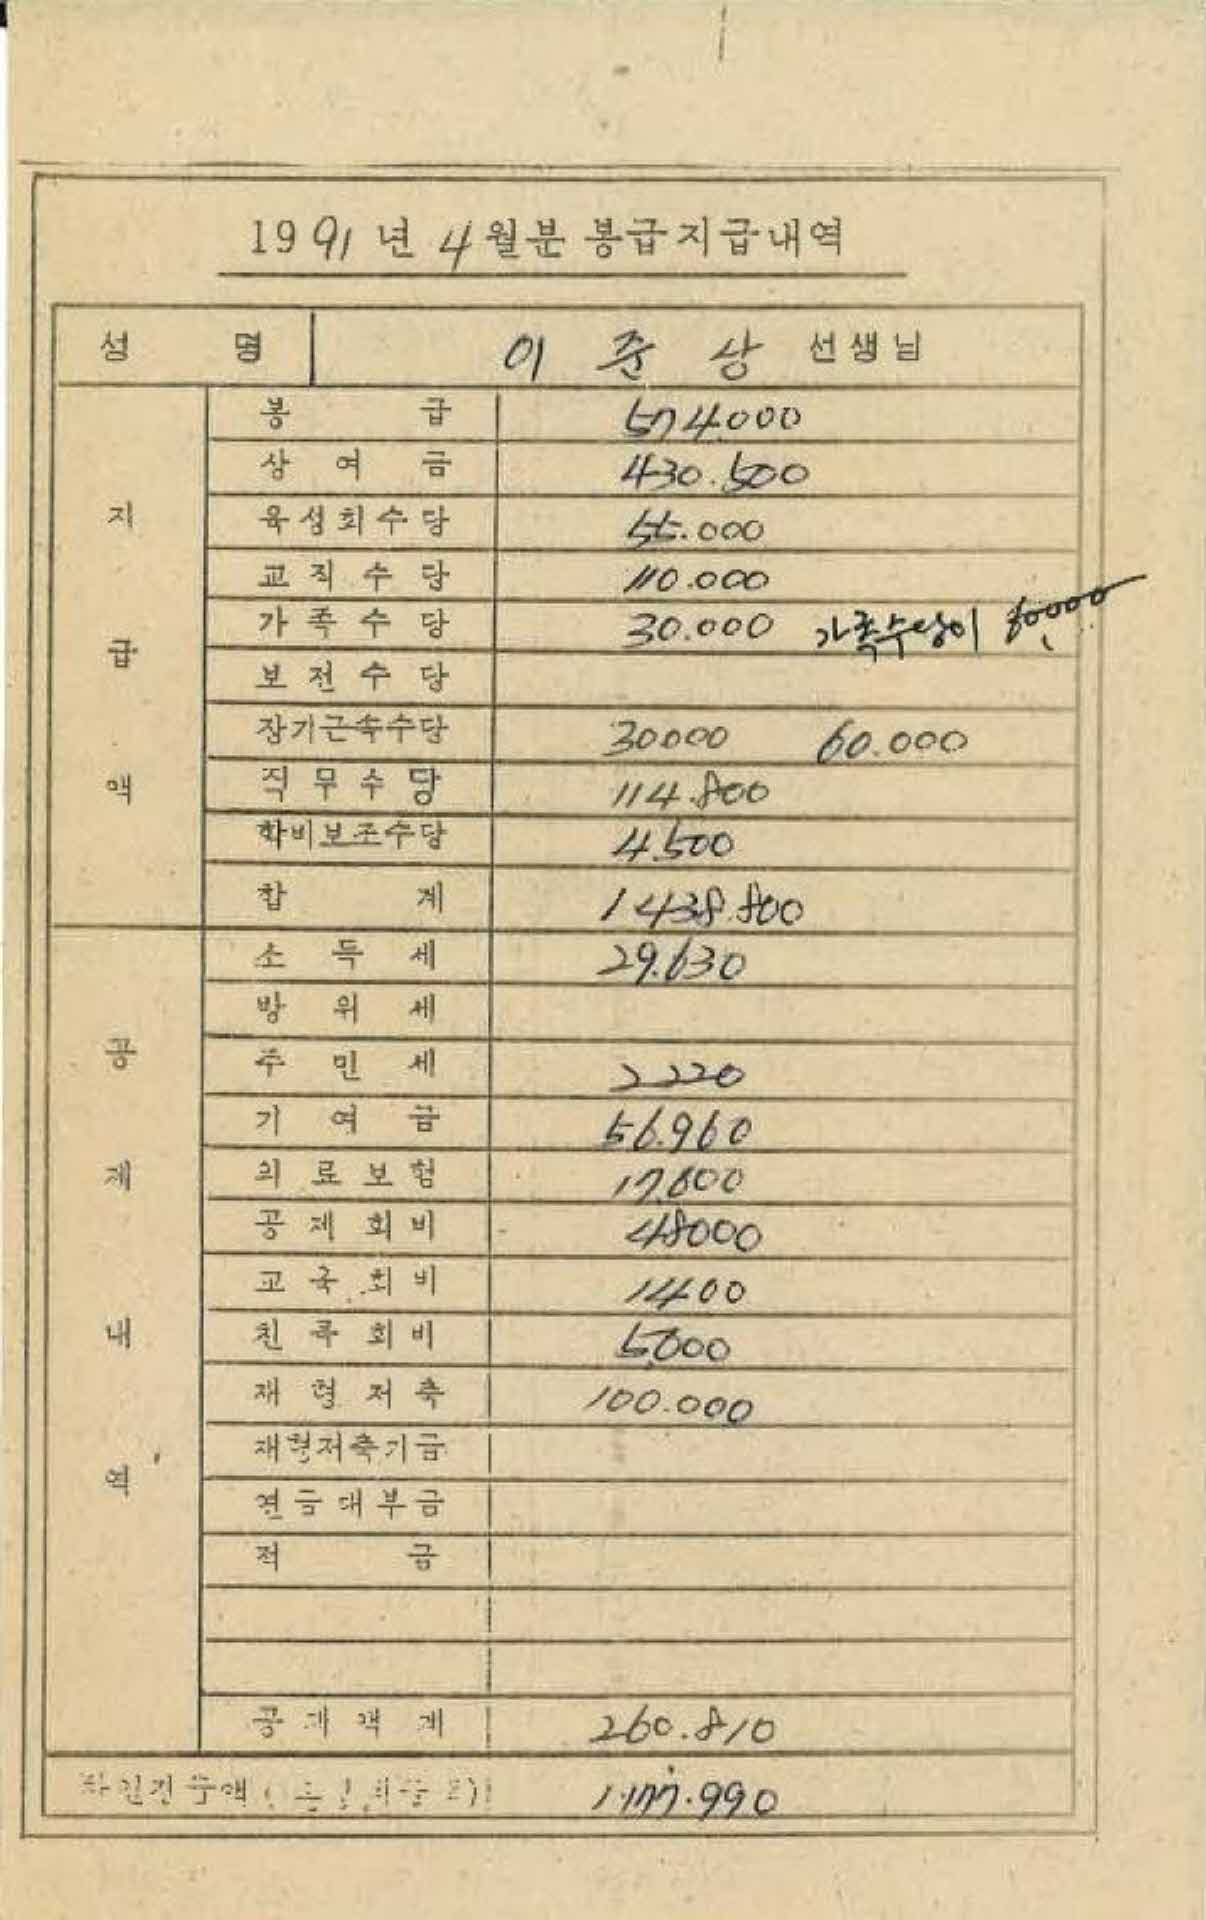 1991년 4월분 봉급지급내역
성 명 이 준 상 선생님
지급액
봉 급 574.000
상 여 금 430.500
육성회수당 55.000
교 직 수 당 110.000
가 족 수 당 30.000 가족수당이
보 전 수 당
장기근속수당 30000 60.000
직 무 수 당 114.800
학비보조수당 4.500
합 계 1438.800
공제내역
소 득 세 29.630
방 위 세
주 민 세 2220
기 여 금 56.960
의 료 보 험 17.600
공 제 회 비 48000
교 육 회 비 1400
친 목 회 비 5.000
재 형 저 축 100.000
재형저축기금
연 금 대 부 금
적 금
공 제 액 계 260.810
차인진수액 1.177.990